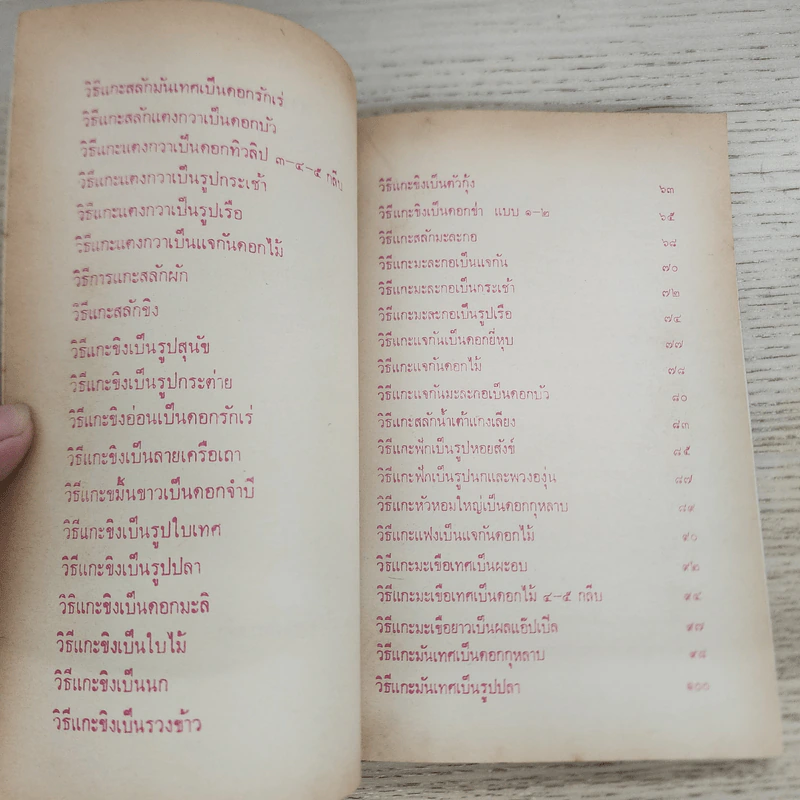 วิธีแกะสลักมันเทศเป็นดอกรักเร่
วิธีแกะสลักแตงกวาเป็นดอกบัว
วิธีแกะแตงกวาเป็นดอกทิวลิป ๓-๔-๕ กลีบ
วิธีแกะแตงกวาเป็นรูปกระเช้า
วิธีแกะแตงกวาเป็นรูปเรือ
วิธีแกะแตงกวาเป็นแจกันดอกไม้
วิธีการแกะสลักผัก
วิธีแกะสลักขิง
วิธีแกะขิงเป็นรูปสุนัข
วิธีแกะขิงเป็นรูปกระต่าย
วิธีแกะขิงอ่อนเป็นดอกรักเร่
วิธีแกะขิงเป็นลายเครือเถา
วิธีแกะขมิ้นขาวเป็นดอกจำปี
วิธีแกะขิงเป็นรูปใบเทศ
วิธีแกะขิงเป็นรูปปลา
วิธีแกะขิงเป็นดอกมะลิ
วิธีแกะขิงเป็นใบไม้
วิธีแกะขิงเป็นนก
วิธีแกะขิงเป็นรวงข้าว
วิธีแกะขิงเป็นตัวกุ้ง ๖๓
วิธีแกะขิงเป็นดอกข่า แบบ ๑-๒ ๖๕
วิธีแกะสลักมะละกอ ๖๘
วิธีแกะมะละกอเป็นแจกัน ๗๐
วิธีแกะมะละกอเป็นกระเช้า ๗๒
วิธีแกะมะละกอเป็นรูปเรือ ๗๔
วิธีแกะแจกันเป็นดอกยี่หุบ ๗๗
วิธีแกะแจกันดอกไม้ ๗๘
วิธีแกะแจกันมะละกอเป็นดอกบัว ๘๐
วิธีแกะสลักน้ำเต้าแกงเลียง ๘๓
วิธีแกะฟักเป็นรูปหอยสังข์ ๘๕
วิธีแกะฟักเป็นรูปนกและพวงองุ่น ๘๗
วิธีแกะหัวหอมใหญ่เป็นดอกกุหลาบ ๘๙
วิธีแกะแฟงเป็นแจกันดอกไม้ ๙๐
วิธีแกะมะเขือเทศเป็นผะอบ ๙๒
วิธีแกะมะเขือเทศเป็นดอกไม้ ๔-๕ กลีบ ๙๔
วิธีแกะมะเขือยาวเป็นผลแอ๊ปเปิ้ล ๙๗
วิธีแกะมันเทศเป็นดอกกุหลาบ ๙๘
วิธีแกะมันเทศเป็นรูปปลา ๑๐๐